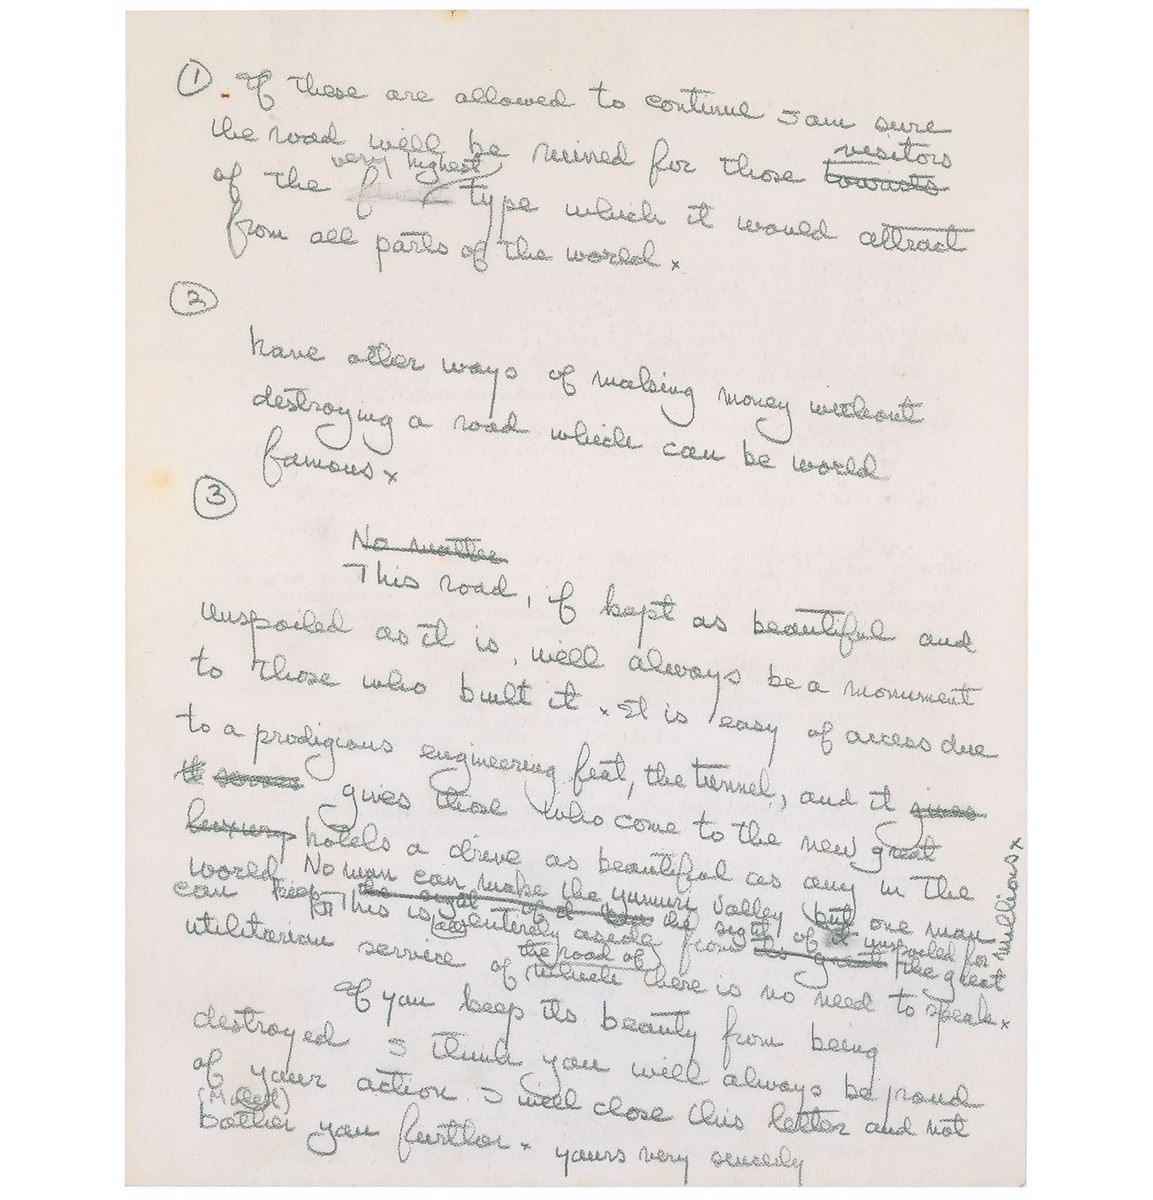 ① If these are allowed to continue I am sure
visitors
the road will be ruined for those tourists
very highest
of the type which it would attract
from all parts of the world x
②
have other ways of making money without
destroying a road which can be world
famous x
③
No matter
This road, if kept as beautiful and
unspoiled as it is, will always be a monument
to those who built it x It is easy of access due
to a prodigious engineering feat, the tunnel, and it gives
gives those who come to the new great
luxury hotels a drive as beautiful as any in the
world No man can make the yumuri valley but one man
can keep the sight of it unspoiled for
millions x
This is entirely aside from its great the great
the road of
utilitarian service of which there is no need to speak x
If you keep its beauty from being
destroyed I think you will always be proud
of your action. I will close this letter and not
bother you further x yours very sincerely